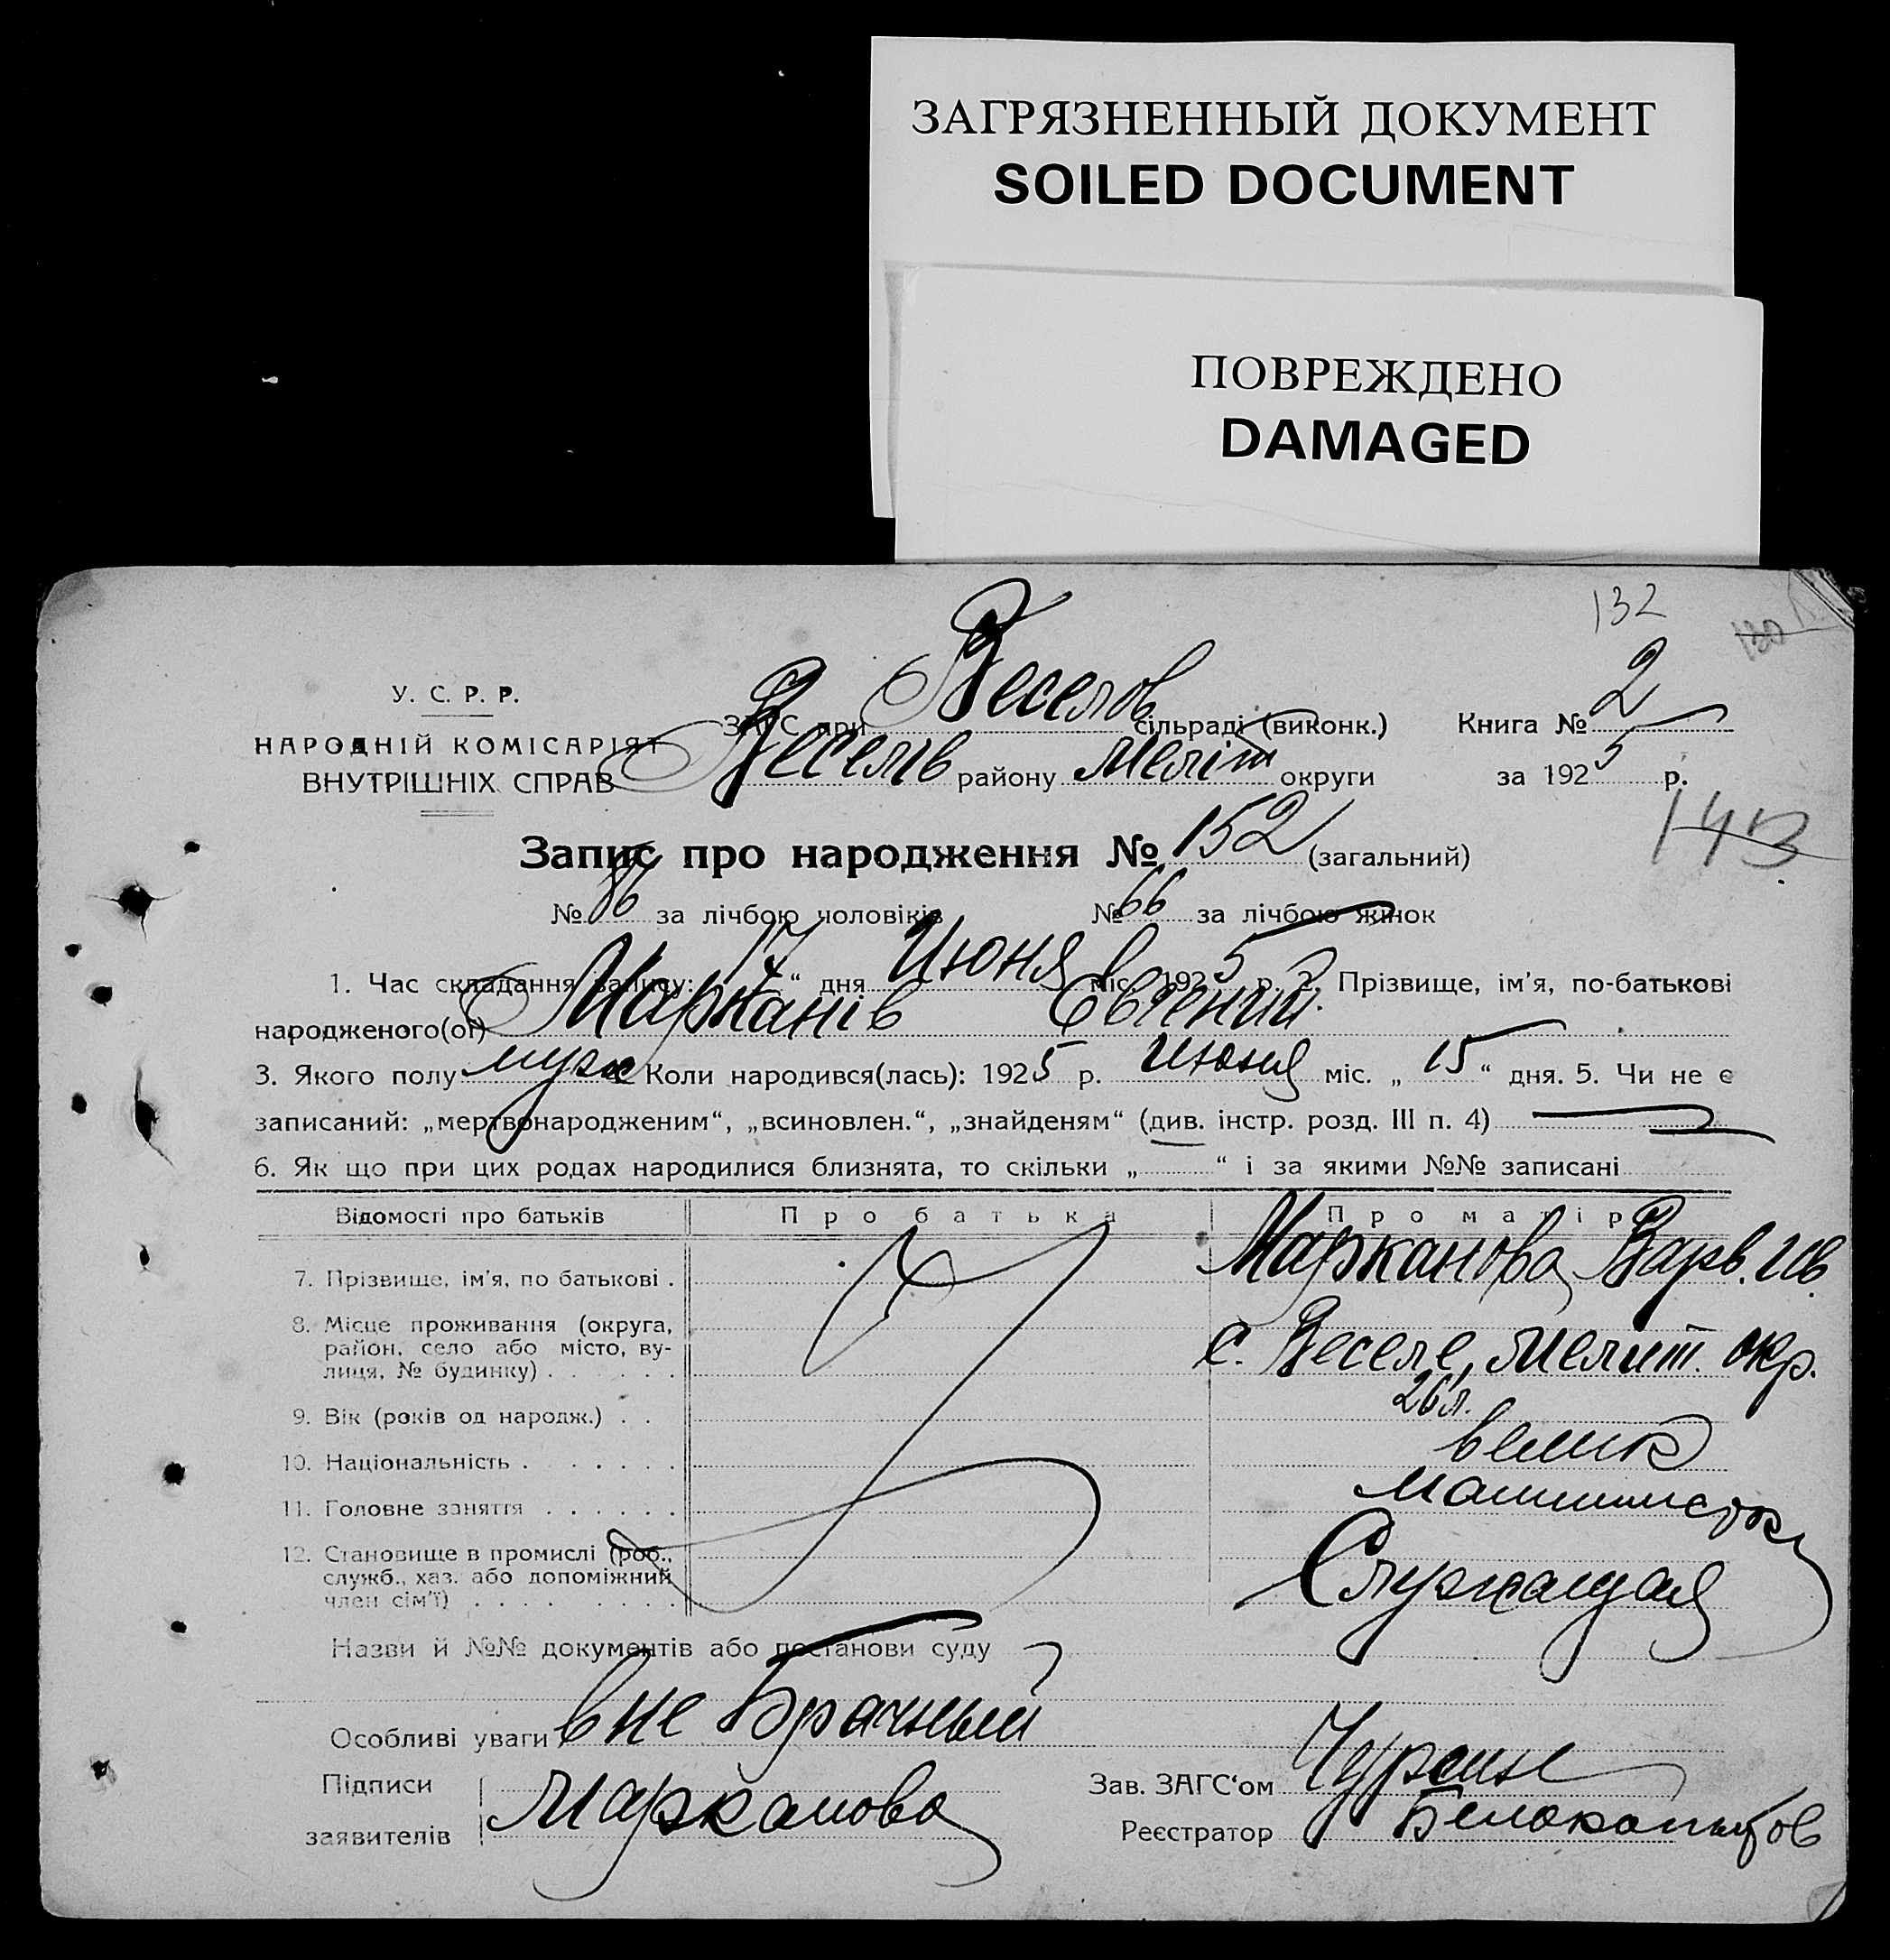 ЗАГРЯЗНЕННЫЙ ДОКУМЕНТ
SOILED DOCUMENT
ПОВРЕЖДЕНО
DAMAGED
132
130
У. С. Р. Р.
НАРОДНІЙ КОМІСАРІЯТ
ВНУТРІШНІХ СПРАВ
ЗАГС при Веселов сільраді (виконк.) Книга № 2
Веселів району Меліт округи за 1925 р.
143
Запис про народження № 152 (загальний)
№ 86 за лічбою чоловіків № 66 за лічбою жінок
1. Час складання запису: 17 “ дня Июня міс. 1925 р. 2. Прізвище, ім'я, по-батькові
народженого(ої) Марканів Євгений
3. Якого полу муж Коли народився(лась): 1925 р. Июня міс. „ 15 “ дня. 5. Чи не є
записаний: „мертвонародженим“, „всиновлен.“, „знайденям“ (див. інстр. розд. III п. 4)
6. Як що при цих родах народилися близнята, то скільки „ “ і за якими №№ записані
Відомості про батьків Про батька Про матір
7. Прізвище, ім'я, по батькові . Марканова Варв. Ив.
8. Місце проживання (округа,
район, село або місто, ву-
лиця, № будинку) . . . . . . с. Веселе, Мелит. окр.
9. Вік (років од народж.) . . 26 л.
10. Національність . . . . . . . велик
11. Головне заняття . . . . . . машинистка
12. Становище в промислі (роб.,
служб., хаз. або допоміжний
член сім'ї) . . . . . . . . Служащая
Назви й №№ документів або постанови суду
Особливі уваги вне брачный
Підписи
заявителів Марканова
Зав. ЗАГС'ом Чурсин
Реєстратор Белокопытов